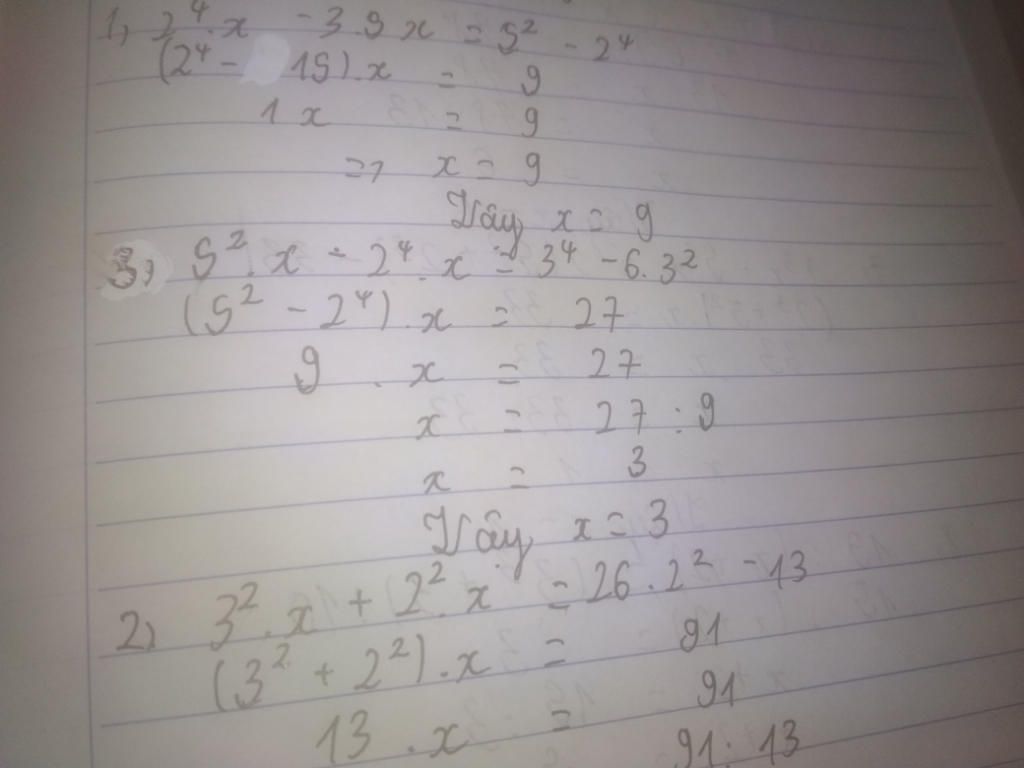 1, 2⁴.x - 3.5x = 5² - 2⁴
(2⁴ - 15).x = 9
1x = 9
=> x = 9
Vậy x = 9
3, 5².x - 2⁴.x = 3⁴ - 6.3²
(5² - 2⁴).x = 27
9 . x = 27
x = 27 : 9
x = 3
Vậy x = 3
2, 3².x + 2².x = 26.2² - 13
(3² + 2²).x = 91
13 . x = 91
91 : 13